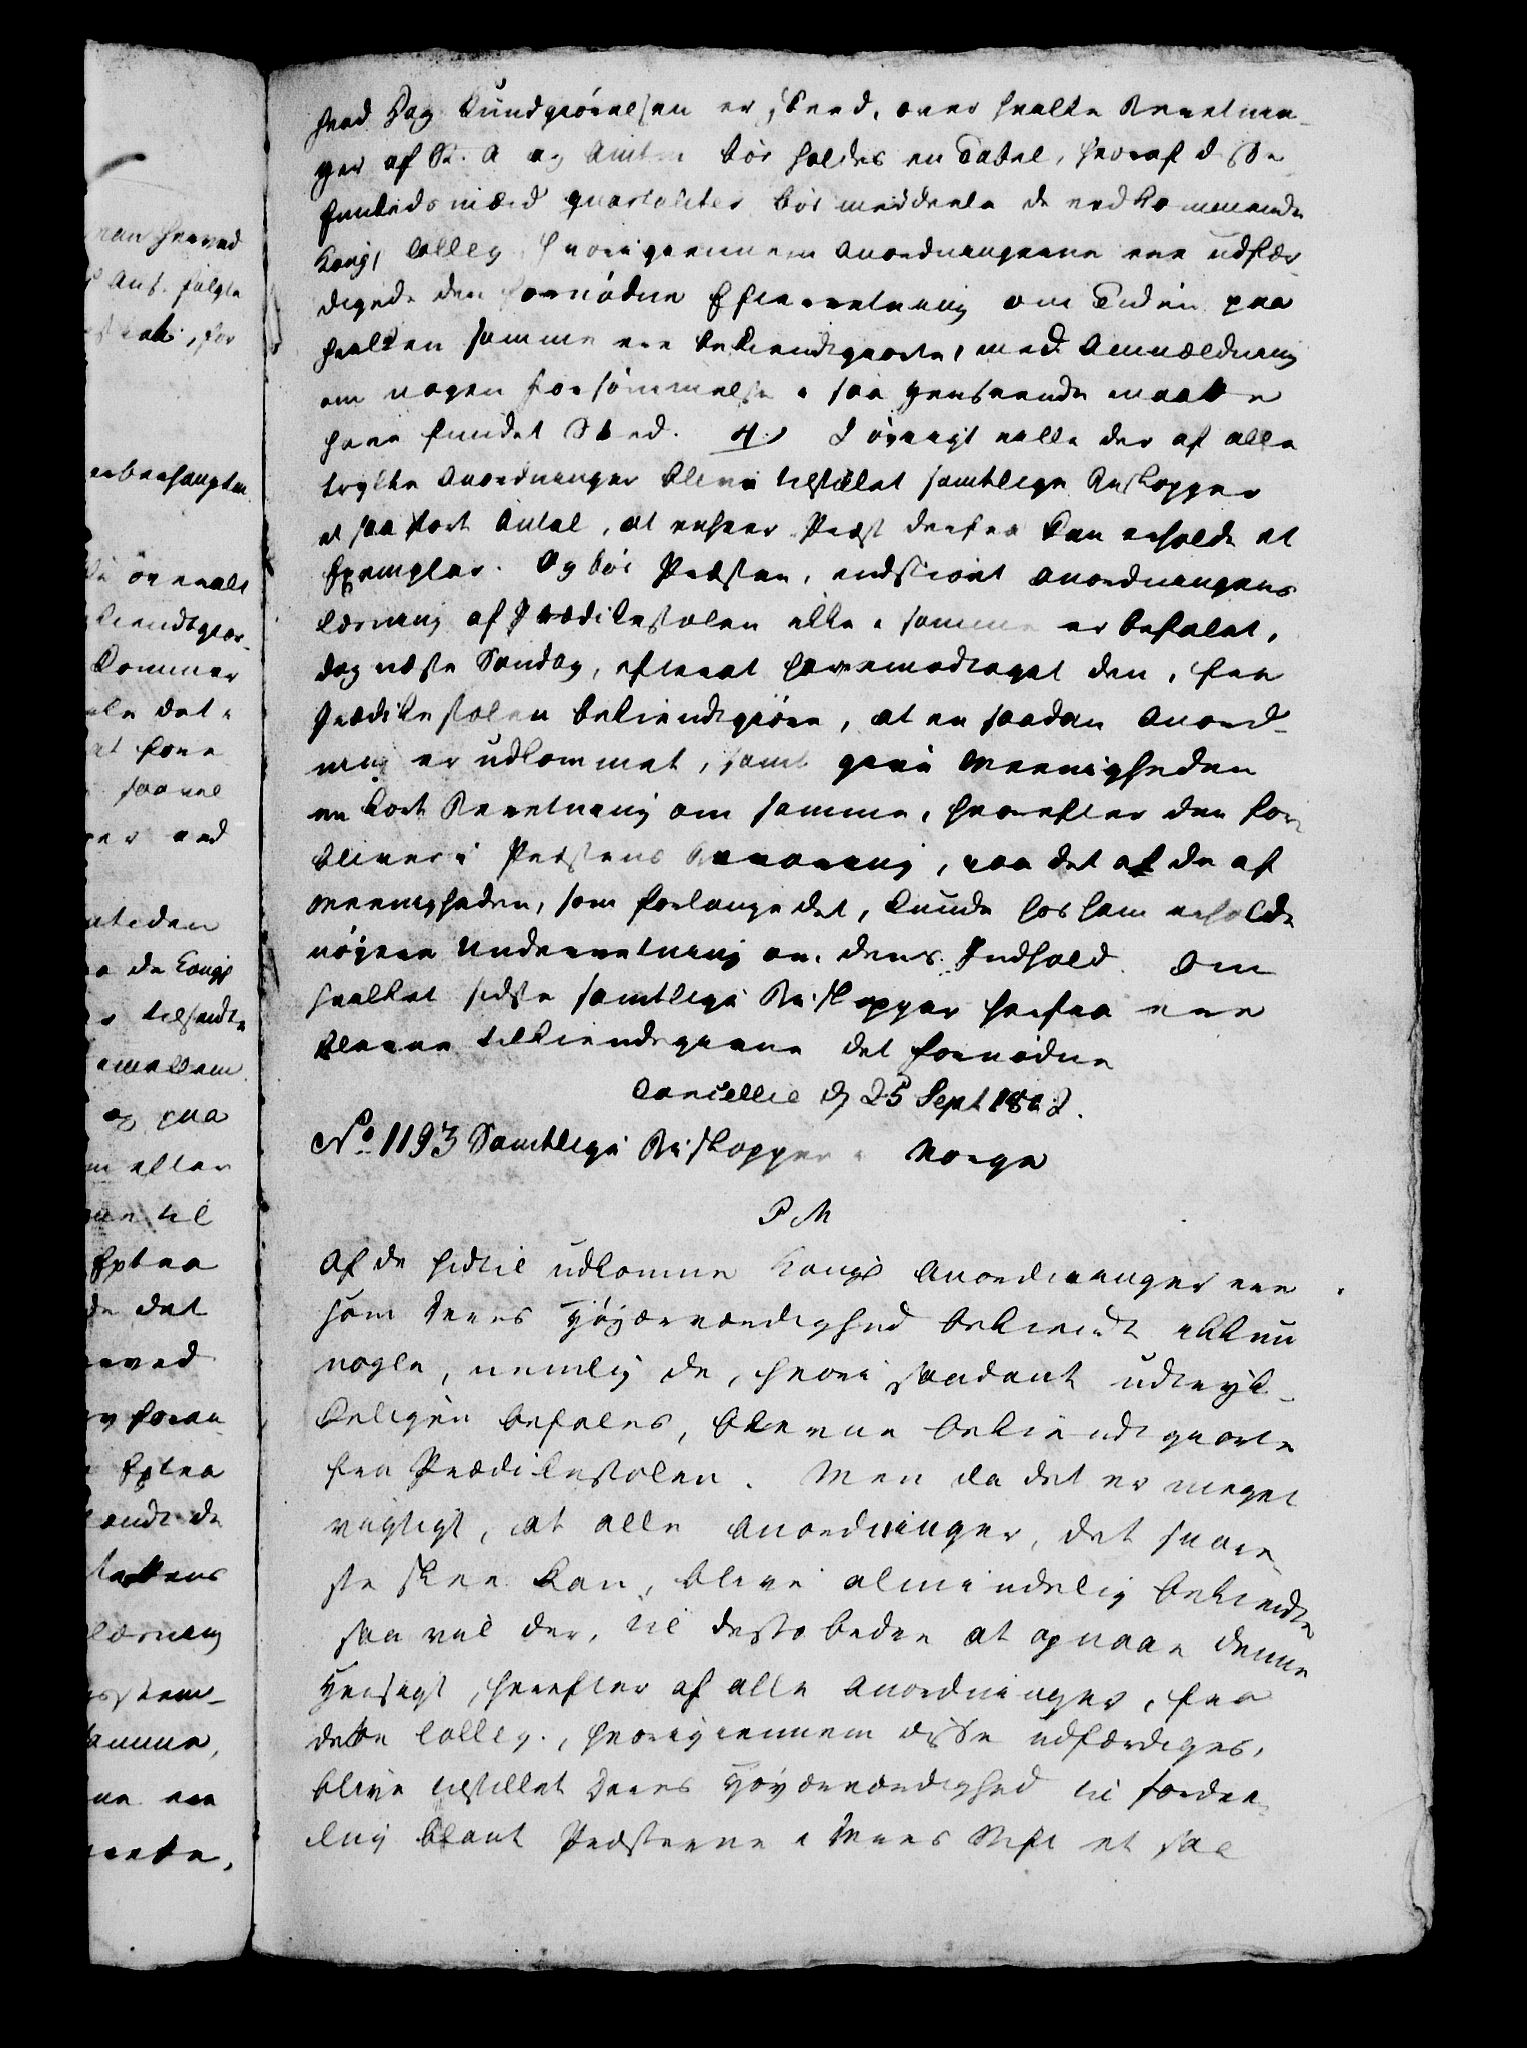 hvad Dag Kundgiörelsen er skeed, over hvilke Beretnin-
ger af St. A og Amtm bör holdes en Tabel, hvoraf disse
Embedsmænd quartaliter bör meddeele de vedkommende
Kongl Colleg. hvorigiennem Anordningerne ere udfær-
digede den fornödne Efterretning om Tiden paa
hvilken samme ere bekiendtgiorte, med Anmældning
om nogen Forsömmelse i saa Henseende maatte
have fundet Sted. 4) I övrigt ville der af alle
trykte Anordninger blive tilstillet samtlige Biskopper
et saa stort Antal, at enhver Præst derfra kan erholde et
Exemplar. Og bör Præsten, endskiönt Anordningens
Læsning af Prædikestolen ikke i samme er befalet,
dog næste Söndag, efterat have modtaget den, fra
Prædikestolen bekiendtgiöre, at en saadan Anord-
ning er udkommet, samt give Meenigheden
en kort Beretning om samme, hvorefter den for-
bliver i Præstens Bevaring, paa det at de af
Meenigheden, som forlange det, kunde hos ham erholde
nöyere Underretning om dens Indhold. Om
hvilket sidste samtlige Biskopper herfra ere
blevne tilkiendegivne det fornödne
Cancellie d 25 Sept 1802.
No. 1193 Samtlige Biskopper i Norge
P M
Af de hidtil udkomne Kongl Anordninger ere
som Deres Höyærværdighed bekiendt ikkun
nogle, nemlig de, hvori saadant udtryk-
keligen befales, blevne bekiendtgiorte
fra Prædikestolen. Men da det er meget
vigtigt, at alle Anordninger, det snare-
ste skee kan, blive almindelig bekiendte
saa vil der, til desto bedre at opnaae denne
Hensigt, herefter af alle Anordninger, fra
dette Colleg., hvorigiennem disse udfærdiges,
blive tilstillet Deres Höyærværdighed til Fordee-
ling blant Præsterne i Deres Stift et saa